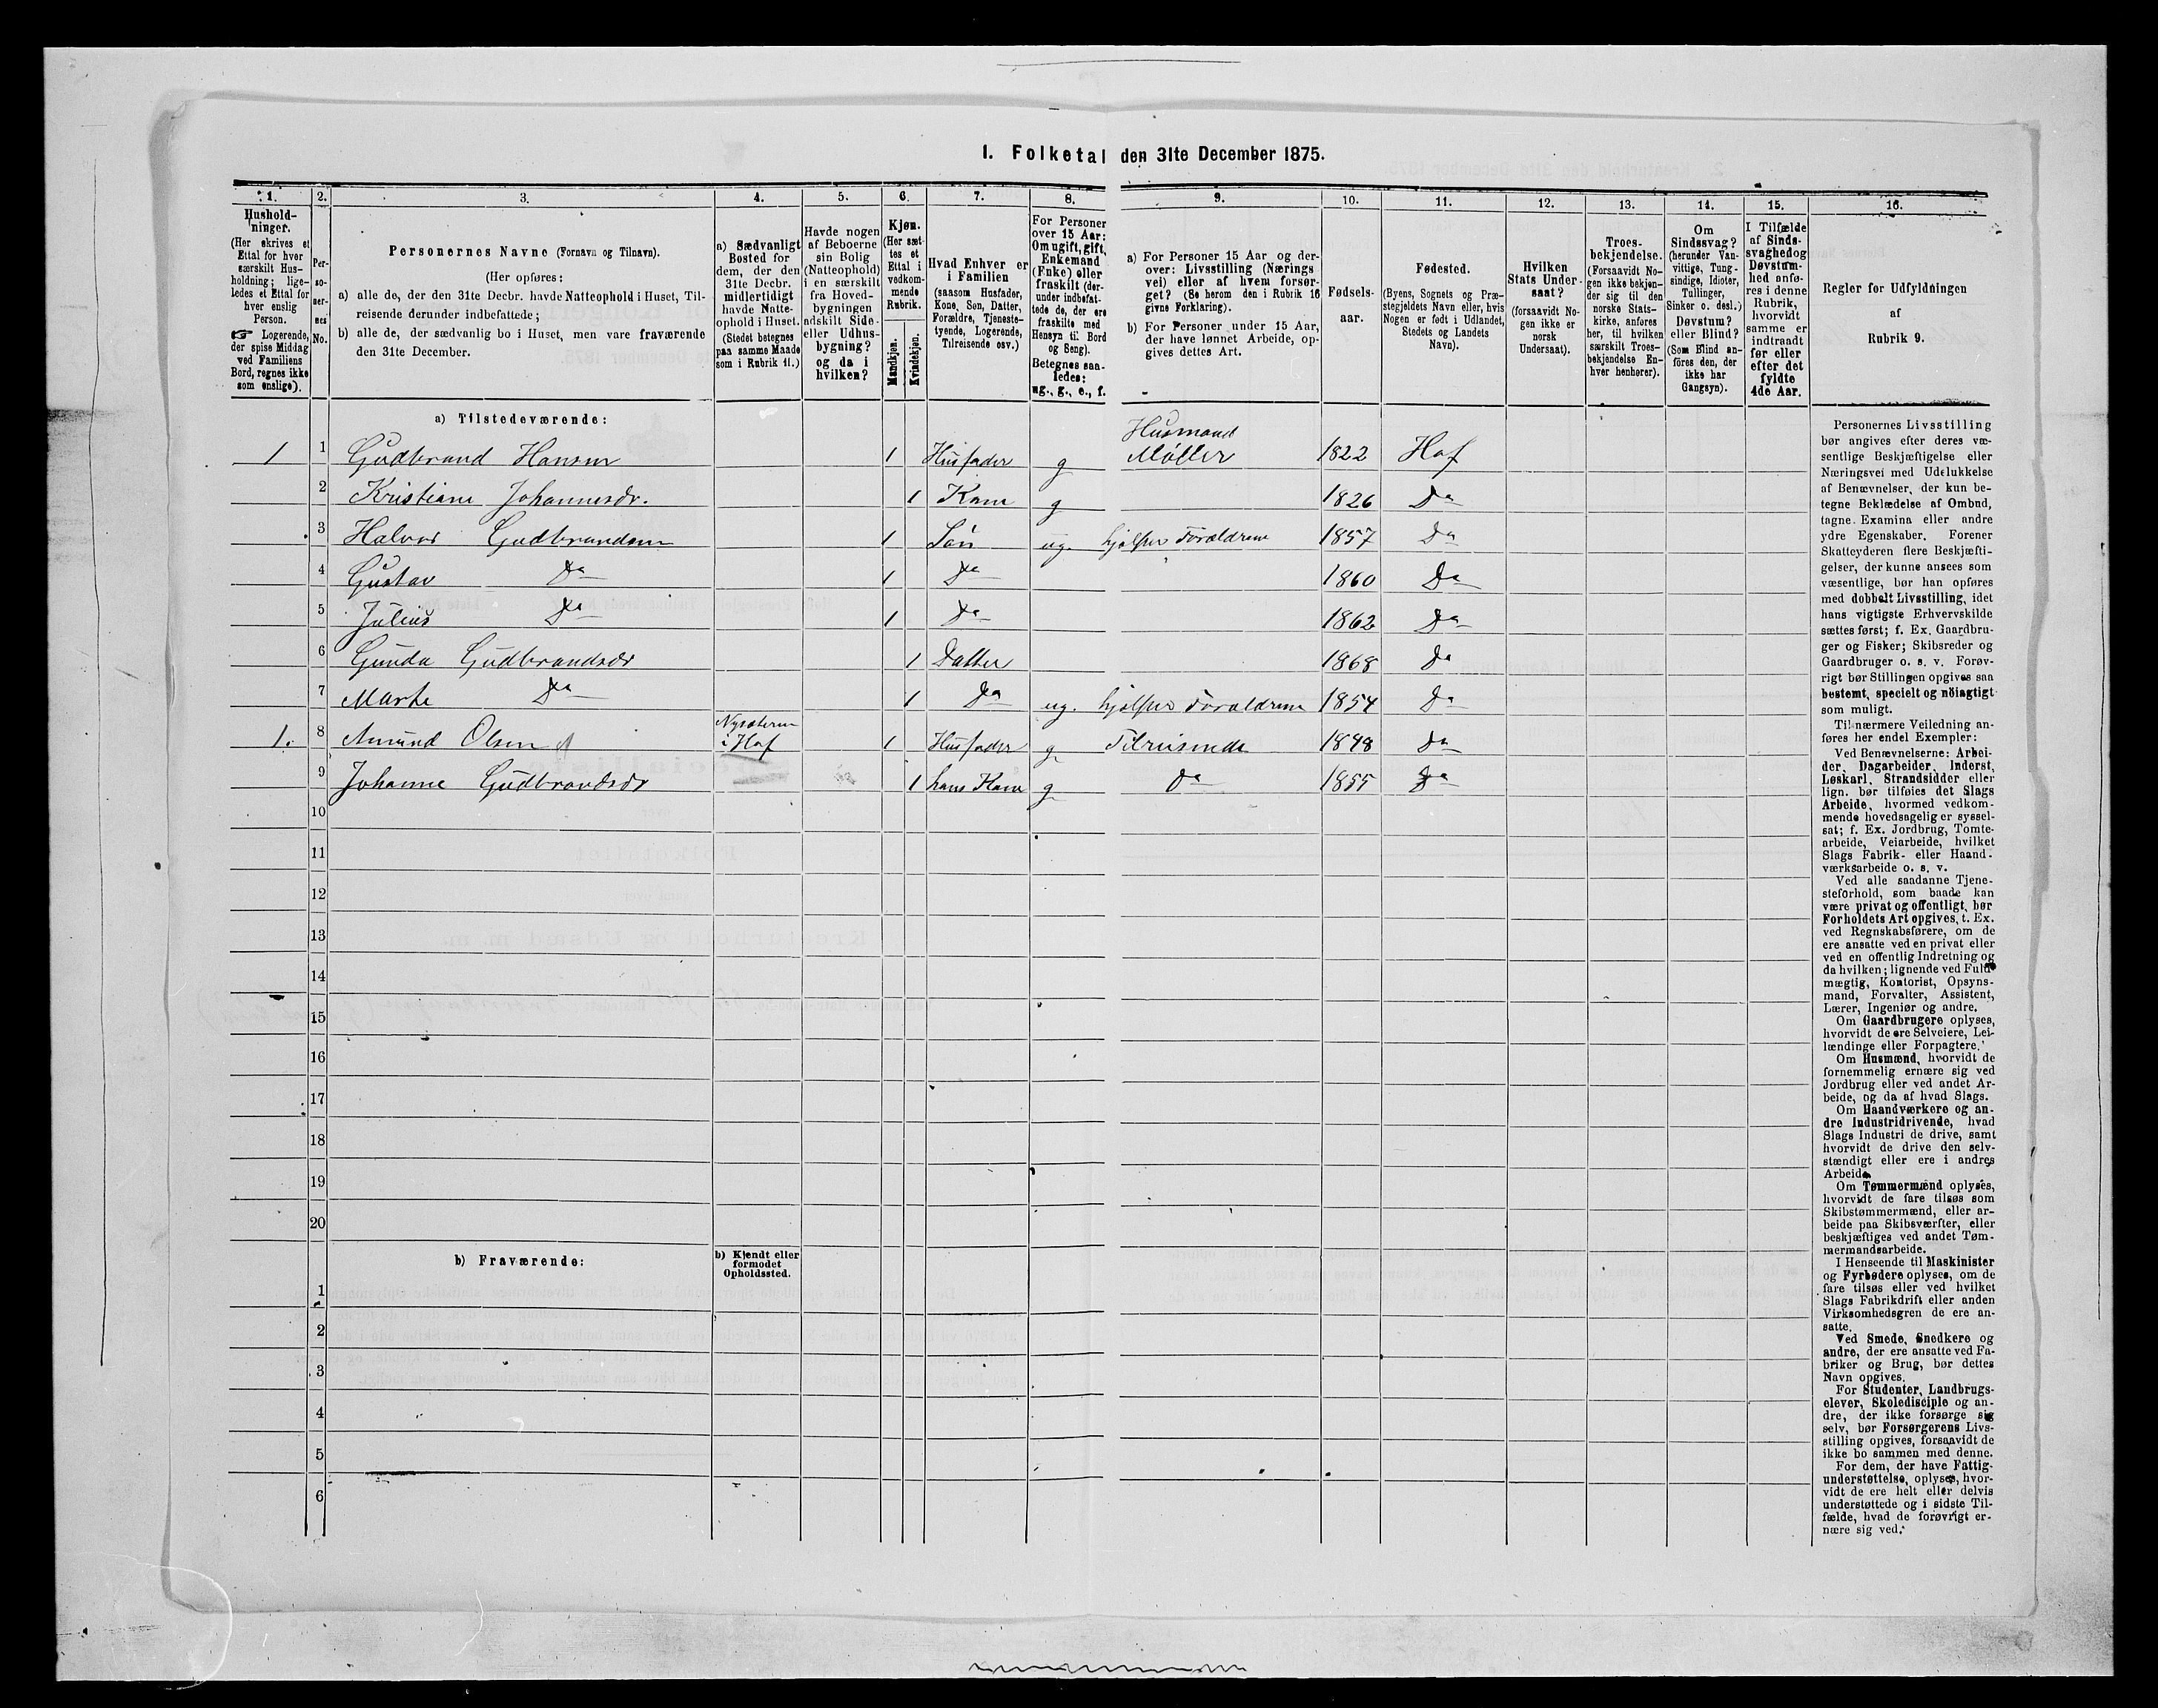 1. Folketal den 31te December 1875.
1. 2. 3. 4. 5. 6. 7. 8. 9. 10. 11. 12. 13. 14. 15. 16.
Hushold-
ninger.
(Her skrives et
Ettal for hver
særskilt Hus-
holdning; lige-
ledes et Ettal for
hver enslig
Person.
☞ Logerende,
der spise Middag
ved Familiens
Bord, regnes ikke
som enslige).
Per-
so-
ner-
nes
No.
Personernes Navne (Fornavn og Tilnavn).
(Her opføres:
a) alle de, der den 31te Decbr. havde Natteophold i Huset, Til-
reisende derunder indbefattede;
b) alle de, der sædvanlig bo i Huset, men vare fraværende
den 31te December.
a) Sædvanligt
Bosted for
dem, der den
31te Decbr.
midlertidigt
havde Natte-
ophold i Huset.
(Stedet betegnes
paa samme Maade
som i Rubrik 11.)
Havde nogen
af Beboerne
sin Bolig
(Natteophold)
i en særskilt
fra Hoved-
bygningen
adskilt Side-
eller Udhus-
bygning?
og da i
hvilken?
Kjøn.
(Her sæt-
tes et
Ettal i
vedkom-
mende
Rubrik.
Mandkjøn.
Kvindekjøn.
Hvad Enhver er
i Familien
(saasom Husfader,
Kone, Søn, Datter,
Forældre, Tjeneste-
tyende, Logerende,
Tilreisende osv.)
For Personer
over 15 Aar:
Om ugift, gift,
Enkemand
(Enke) eller
fraskilt (der-
under indbefat-
tede de, der ere
fraskilte med
Hensyn til Bord
og Seng).
Betegnes saa-
ledes:
ug., g., e., f.
a) For Personer 15 Aar og der-
over: Livsstilling (Nærings
vei) eller af hvem forsør-
get? (Se herom den i Rubrik 16
givne Forklaring).
b) For Personer under 15 Aar,
der have lønnet Arbeide, op-
gives dettes Art.
Fødsels-
aar.
Fødested.
(Byens, Sognets og Præ-
stegjeldets Navn eller, hvis
Nogen er født i Udlandet,
Stedets og Landets
Navn).
Hvilken
Stats Under-
saat?
(forsaavidt No-
gen ikke er
norsk
Undersaat).
Troes-
bekjendelse.
(Forsaavidt No-
gen ikke bekjen-
der sig til den
norske Stats-
kirke, anføres
her, til hvilken
særskilt Troes-
bekjendelse En-
hver henhører).
Om
Sindssvag?
(herunder Van-
vittige, Tung-
sindige, Idioter,
Tullinger,
Sinker o. desl.)
Døvstum?
eller Blind?
(Som Blind an-
føres den, der
ikke har
Gangsyn).
I Tilfælde
af Sinds-
svaghed og
Døvstum-
hed anfø-
res i denne
Rubrik,
hvorvidt
samme er
indtraadt
før eller
efter det
fyldte
4de Aar.
Regler for Udfyldningen
af
Rubrik 9.
a) Tilstedeværende:
1 1 Gudbrand Hansen 1 Husfader g Husmand Møller 1822 Hof
2 Kristiane Johannesdr. 1 Kone g 1826 Do
3 Halvor Gudbrandsen 1 Søn ug. hjelper Forældrene 1857 Do
4 Gustav Do 1 Do 1860 Do
5 Julius Do 1 Do 1862 Do
6 Gunda Gudbrandsdr 1 Datter 1868 Do
7 Marte Do 1 Do ug. hjelper Forældrene 1854 Do
1. 8 Amund Olsen Nysæteren i Hof 1 Husfader g Tilreisende 1848 Do
9 Johanne Gudbrandsdr 1 hans Kone g Do 1855 Do
10
11
12
13
14
15
16
17
18
19
20
b) Fraværende:
b) Kjendt eller
formodet
Opholdssted.
1
2
3
4
5
6
Personernes Livsstilling
bør angives efter deres væ-
sentlige Beskjæftigelse eller
Næringsvei med Udelukkelse
af Benævnelser, der kun be-
tegne Beklædelse af Ombud,
tagne Examina eller andre
ydre Egenskaber. Forener
Skatteyderen flere Beskjæfti-
gelser, der kunne ansees som
væsentlige, bør han opføres
med dobbelt Livsstilling, idet
hans vigtigste Erhvervskilde
sættes først; f. Ex. Gaardbru-
ger og Fisker; Skibsreder og
Gaardbruger o. s. v. Forøv-
rigt bør Stillingen opgives saa
bestemt, specielt og nøiagtigt
som muligt.
Til nærmere Veiledning an-
føres her endel Exempler:
Ved Benævnelserne: Arbei-
der, Dagarbeider, Inderst,
Løskarl, Strandsidder eller
lign. bør tilføies det Slags
Arbeide, hvormed vedkom-
mende hovedsagelig er syssel-
sat; f. Ex. Jordbrug, Tomte-
arbeide, Veiarbeide, hvilket
Slags Fabrik- eller Haand-
værksarbeide o. s. v.
Ved alle saadanne Tjene-
steforhold, som baade kan
være privat og offentligt, bør
Forholdets Art opgives, t. Ex.
ved Regnskabsførere, om de
ere ansatte ved en privat eller
ved en offentlig Indretning og
da hvilken; lignende ved Fuld-
mægtig, Kontorist, Opsyns-
mand, Forvalter, Assistent,
Lærer, Ingeniør og andre.
Om Gaardbrugere oplyses,
hvorvidt de ere Selveiere, Lei-
lændinge eller Forpagtere.
Om Husmænd, hvorvidt de
fornemmelig ernære sig ved
Jordbrug eller ved andet Ar-
beide, og da af hvad Slags.
Om Haandværkere og an-
dre Industridrivende, hvad
Slags Industri de drive, samt
hvorvidt de drive den selv-
stændigt eller ere i andres
Arbeide.
Om Tømmermænd oplyses,
hvorvidt de fare tilsøs som
Skibstømmermænd, eller ar-
beide paa Skibsværfter, eller
beskjæftiges ved andet Tøm-
mermandsarbeide.
I Henseende til Maskinister
og Fyrbødere oplyses, om de
fare tilsøs eller ved hvilket
Slags Fabrikdrift eller anden
Virksomhedsgren de ere an-
satte.
Ved Smede, Snedkere og
andre, der ere ansatte ved Fa-
briker og Brug, bør dettes
Navn opgives.
For Studenter, Landbrugs-
elever, Skoledisciple og an-
dre, der ikke forsørge sig
selv, bør Forsørgerens Livs-
stilling opgives, forsaavidt de
ikke bo sammen med denne.
For dem, der have Fattig-
understøttelse, oplyses, hvor-
vidt de ere helt eller delvis
understøttede og i sidste Til-
fælde, hvad de forøvrigt er-
nære sig ved.